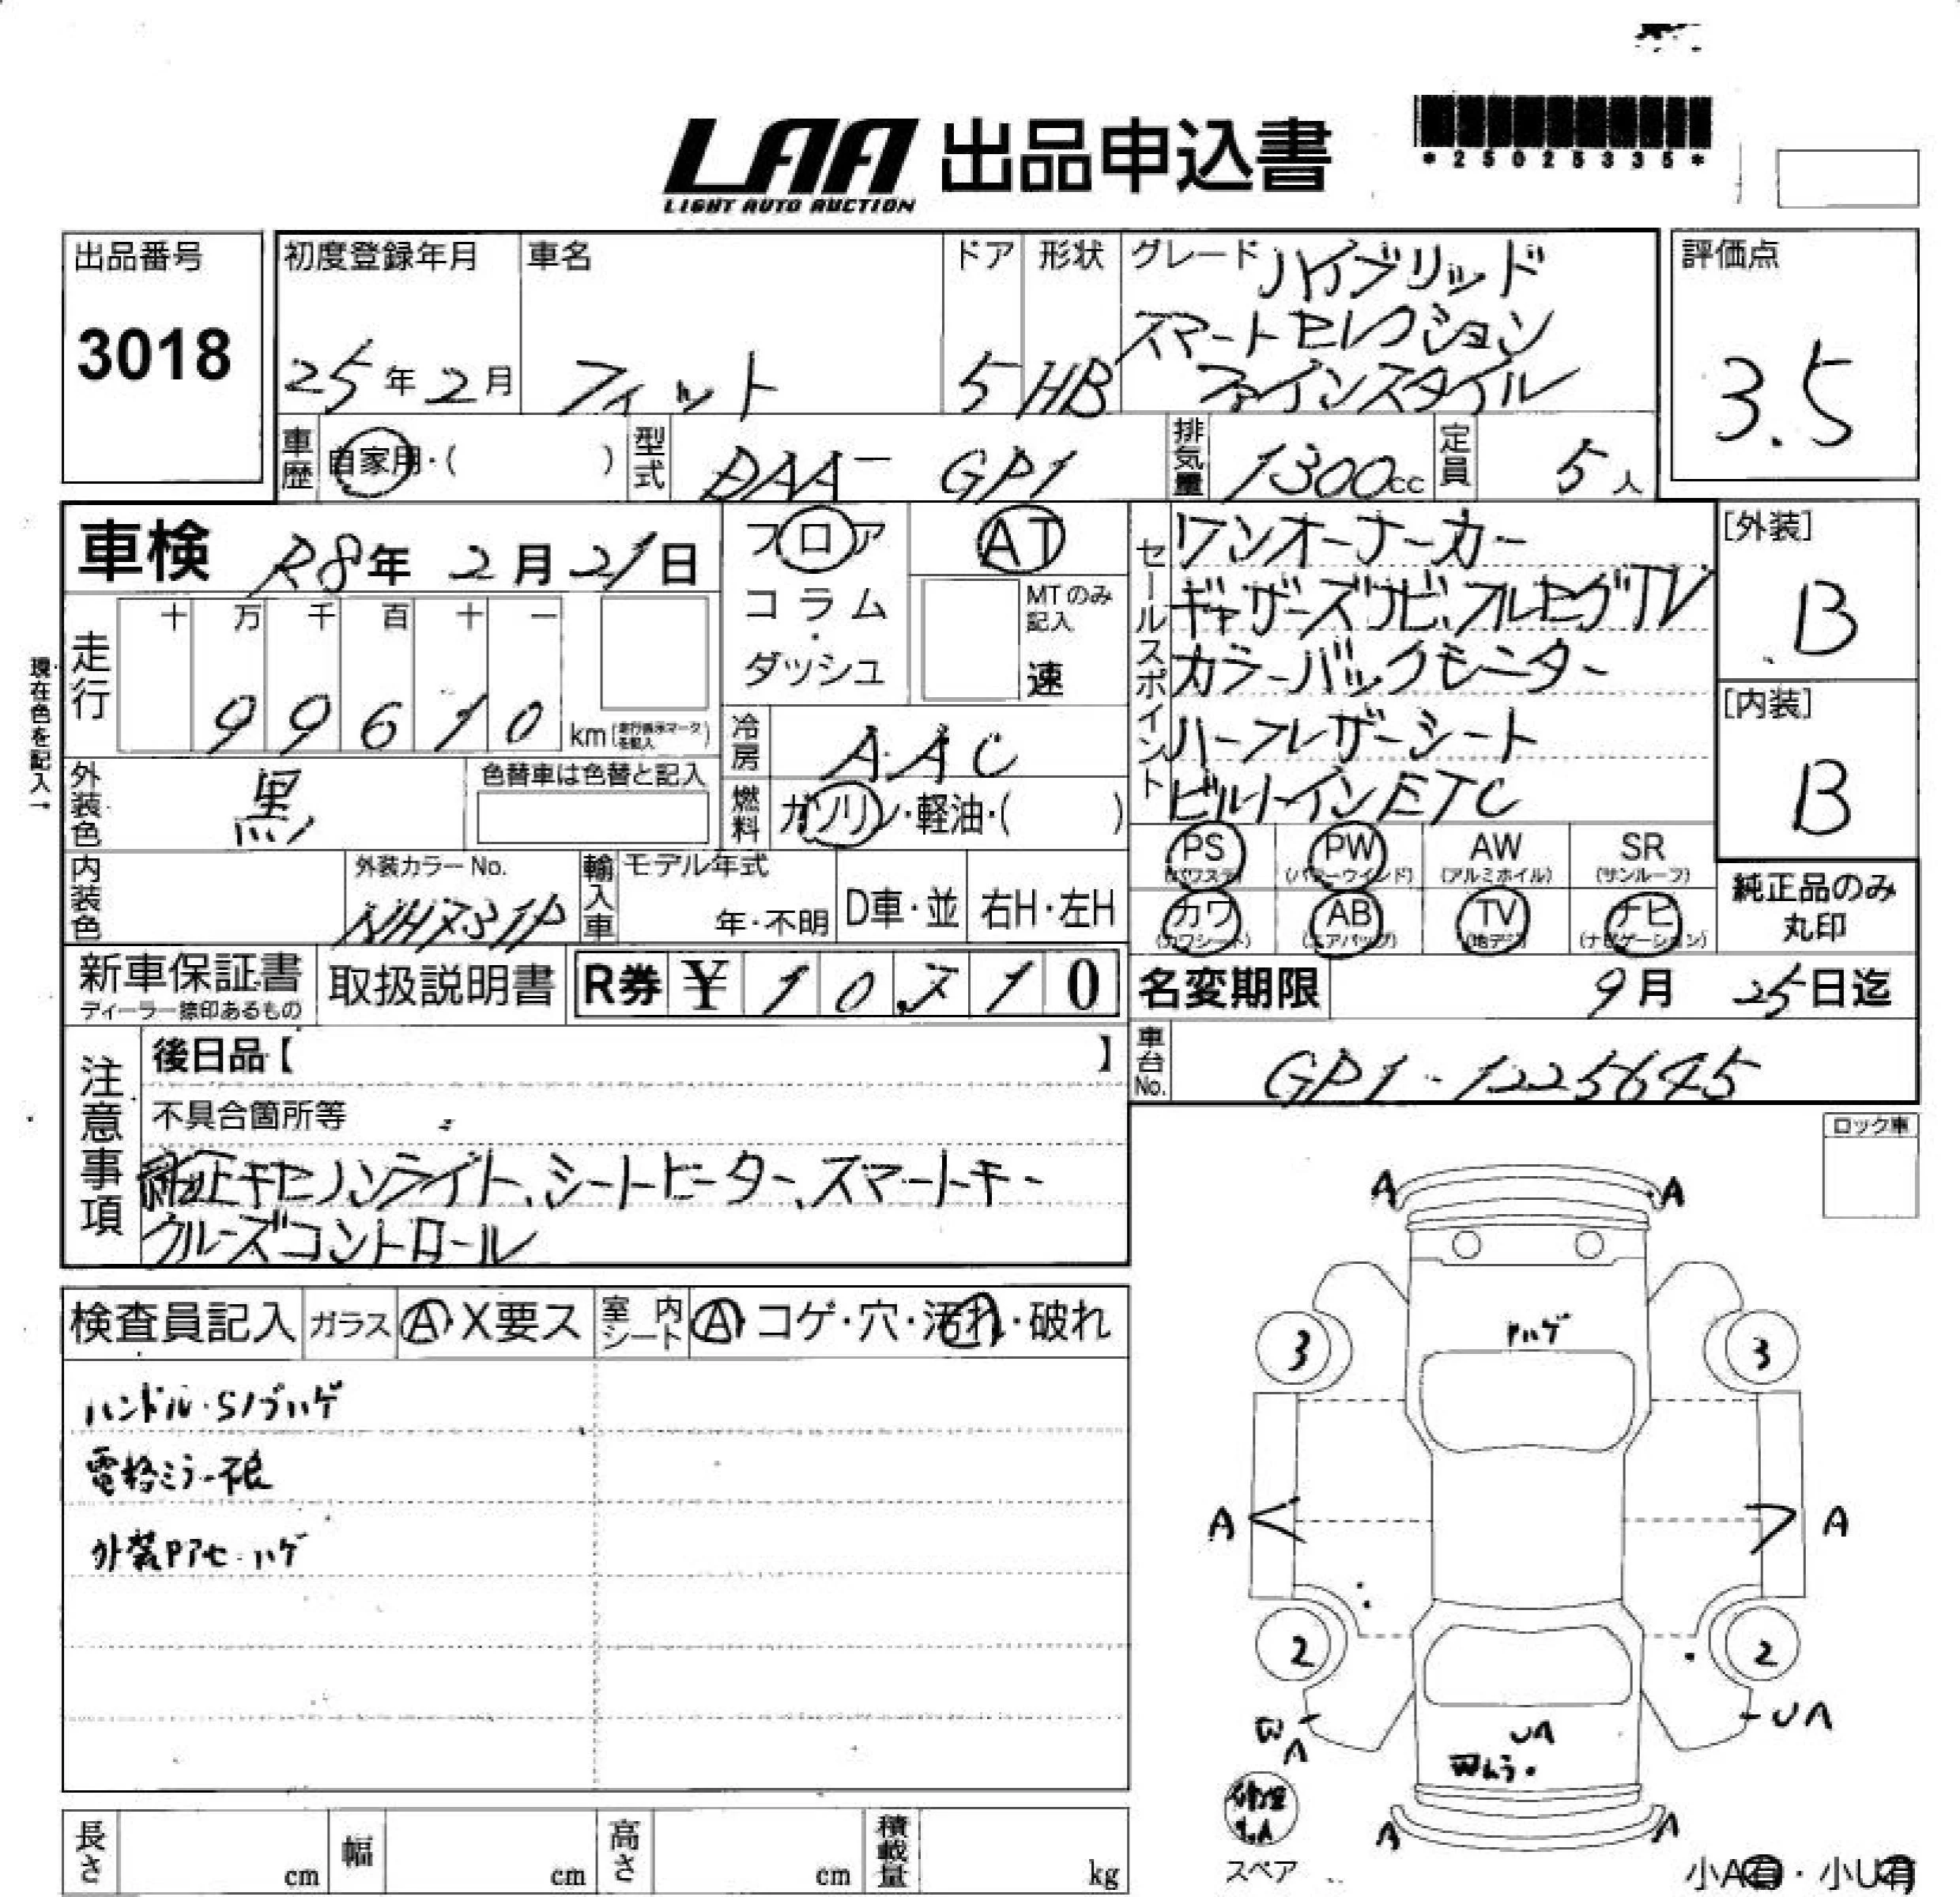 *25025335*
LAA 出品申込書
LIGHT AUTO AUCTION
出品番号
3018
初度登録年月
25年2月
車名
フィット
ドア
5
形状
HB
グレード ハイブリッド
スマートセレクション
ファインスタイル
評価点
3.5
車歴 自家用・( )
型式 DAA- GP1
排気量 1300cc
定員 5人
車検 R8年 2月21日
フロア
コラム
・
ダッシュ
AT
MTのみ
記入
速
セールスポイント
ワンオーナーカー
ギャザーズナビ、フルセグTV
カラーバックモニター
ハーフレザーシート
ビルトインETC
[外装]
B
[内装]
B
現在色を記入→
走行
十 万 千 百 十 一
9 9 6 1 0 km
冷房 AAC
燃料 ガソリン・軽油・( )
外装色 黒
色替車は色替と記入
内装色
外装カラーNo.
NH731P
輸入車
モデル年式
年・不明
D車・並
右H・左H
PS
(パワステ)
PW
(パワーウインド)
AW
(アルミホイル)
SR
(サンルーフ)
カワ
(カワシート)
AB
(エアバッグ)
TV
(地デジ)
ナビ
(ナビゲーション)
純正品のみ
丸印
新車保証書
ディーラー捺印あるもの
取扱説明書
R券 ¥ 1 0 7 1 0
名変期限 9月 25日迄
車台No. GP1-1225645
注意事項
後日品【 】
不具合箇所等
純正キセノンライト、シートヒーター、スマートキー
クルーズコントロール
ロック車
検査員記入
ガラス A X要ス
室内シート A コゲ・穴・汚れ・破れ
ハンドル・Sノブハゲ
電格ミラー不良
外装Pアセ・ハゲ
A A
Pハゲ
3 3
A A
2 2
W
A
UA
UA
A A
スペア
小A有・小U有
長さ cm
幅 cm
高さ cm
積載量 kg